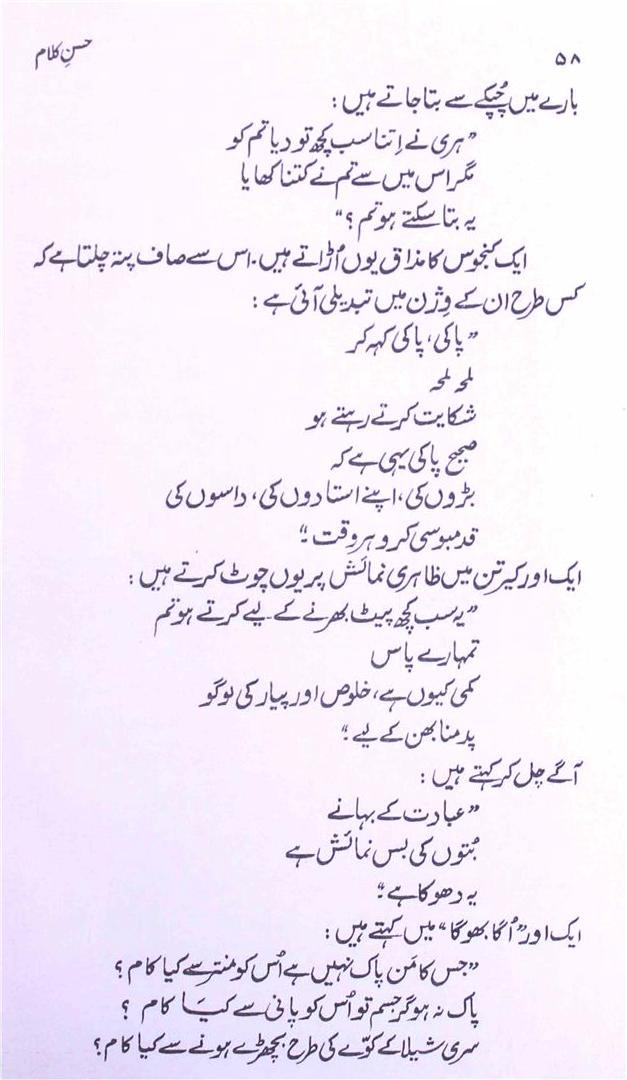 ۵۸ حسنِ کلام
بارے میں چُپکے سے بتا جاتے ہیں :
”ہری نے اِتنا سب کچھ تو دیا تم کو
مگر اس میں سے تم نے کتنا کھایا
یہ بتا سکتے ہو تم ؟“
ایک کنجوس کا مذاق یوں اُڑاتے ہیں. اس سے صاف پتہ چلتا ہے کہ
کس طرح ان کے وِژن میں تبدیلی آئی ہے :
”پاکی، پاکی کہہ کر
لمحہ لمحہ
شکایت کرتے رہتے ہو
صحیح پاکی یہی ہے کہ
بڑوں کی، اپنے استادوں کی، داسوں کی
قدمبوسی کرو ہر وقت ۔“
ایک اور کیرتن میں ظاہری نمائش پر یوں چوٹ کرتے ہیں :
”یہ سب کچھ پیٹ بھرنے کے لیے کرتے ہو تم
تمہارے پاس
کمی کیوں ہے، خلوص اور پیار کی لوگو
پدمنابھن کے لیے ۔“
آگے چل کر کہتے ہیں :
”عبادت کے بہانے
بُتوں کی بس نمائش ہے
یہ دھوکا ہے ۔“
ایک اور ”اُگا بھوگا“ میں کہتے ہیں :
”جس کا مَن پاک نہیں ہے اُس کو منتر سے کیا کام ؟
پاک نہ ہو گر جسم تو اُس کو پانی سے کیَا کام ؟
سری شیلا کے کوّے کی طرح بچھڑے ہونے سے کیا کام ؟